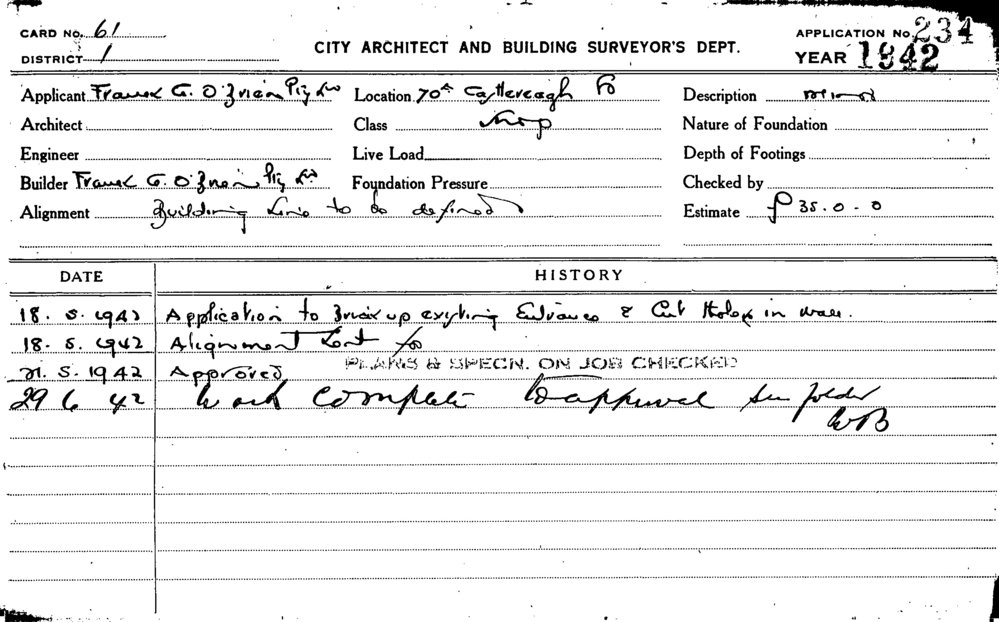 CARD NO. 61
APPLICATION NO. 234
DISTRICT 1
CITY ARCHITECT AND BUILDING SURVEYOR'S DEPT.
YEAR 1942
Applicant Frank G. O'Brien Pty Ltd Location 70A Castlereagh St Description
Architect Class Shop Nature of Foundation
Engineer Live Load Depth of Footings
Builder Frank G. O'Brien Pty Ltd Foundation Pressure Checked by
Alignment Building Line to be defined Estimate £ 35.0.0
DATE HISTORY
18. 5. 1942 Application to Brick up existing Entrance & Cut Holes in wall.
18. 5. 1942 Alignment
5. 1942 Approved PLANS & SPECN. ON JOB CHECKED
29 6 42 Work Complete To approval See folder
WB